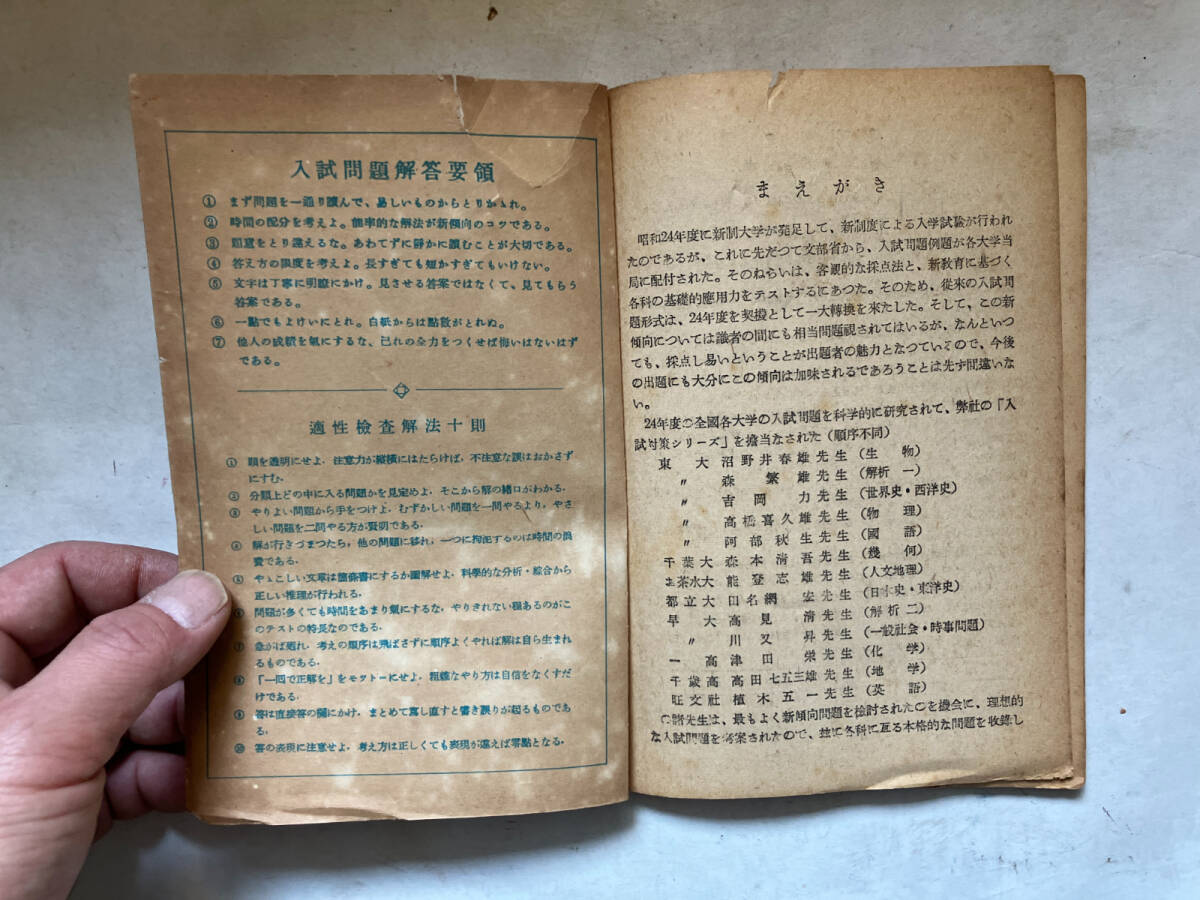 入試問題解答要領
① まず問題を一通り讀んで、易しいものからとりかゝれ。
② 時間の配分を考えよ。能率的な解法が新傾向のコツである。
③ 題意をとり違えるな。あわてずに靜かに讀むことが大切である。
④ 答え方の限度を考えよ。長すぎても短かすぎてもいけない。
⑤ 文字は丁寧に明瞭にかけ。見させる答案ではなくて、見てもらう
答案である。
⑥ 一點でもよけいにとれ。白紙からは點数がとれぬ。
⑦ 他人の成績を氣にするな、己れの全力をつくせば悔いはないはず
である。
適性檢査解法十則
① 頭を透明にせよ、注意力が縱橫にはたらけば、不注意な誤はおかさず
にすむ.
② 分類上どの中に入る問題かを見定めよ、そこから解の緒口がわかる.
③ やりよい問題から手をつけよ、むずかしい問題を一問やるより、やさ
しい問題を二問やる方が賢明である.
④ 解が行きづまつたら、他の問題に移れ、一つに拘泥するのは時間の浪
費である.
⑤ やゝこしい文章は箇條書にするか圖解せよ、科學的な分析・綜合から
正しい推理が行われる.
⑥ 問題が多くても時間をあまり氣にするな、やりきれない程あるのがこ
のテストの特長なのである.
⑦ 急がば廻れ、考えの順序は飛ばさずに順序よくやれば解は自ら生まれ
るものである.
⑧ 「一回で正解を」をモツトーにせよ、粗雜なやり方は自信をなくすだ
けである.
⑨ 答は直接答の欄にかけ、まとめて寫し直すと書き誤りが起るものであ
る.
⑩ 答の表現に注意せよ、考え方は正しくても表現が違えば零點となる.
まえがき
昭和24年度に新制大学が発足して、新制度による入学試験が行われ
たのであるが、これに先だつて文部省から、入試問題例題が各大学当
局に配付された。そのねらいは、客観的な採点法と、新教育に基づく
各科の基礎的應用力をテストするにあつた。そのため、従来の入試問
題形式は、24年度を契機として一大轉換を来たした。そして、この新
傾向については識者の間にも相当問題視されてはいるが、なんといつ
ても、採点し易いということが出題者の魅力となつているので、今後
の出題にも大分にこの傾向は加味されるであろうことは先ず間違いな
い。
24年度の全國各大学の入試問題を科学的に研究されて、弊社の「入
試対策シリーズ」を擔当なされた（順序不同）
東 大 沼野井春雄先生（生 物）
〃 森 繁 雄先生（解析 一）
〃 吉 岡 力先生（世界史・西洋史）
〃 高橋喜久雄先生（物 理）
〃 阿部秋生先生（國 語）
千葉大 森本清吾先生（幾 何）
お茶水大 能登志雄先生（人文地理）
都立大 田名網 宏先生（日本史・東洋史）
早 大 高見 清先生（解析 二）
〃 川又 昇先生（一般社会・時事問題）
一 高 津田 栄先生（化 学）
千歳高 高田七五三雄先生（地 学）
旺文社 植木五一先生（英 語）
の諸先生は、最もよく新傾向問題を検討されたのを機会に、理想的
な入試問題を考案されたので、玆に各科に亙る本格的な問題を收錄し